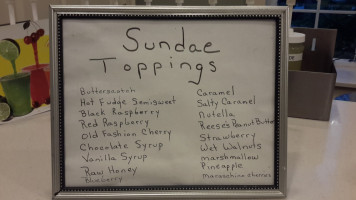 Sundae
Toppings
Butterscotch
Hot Fudge Semisweet
Black Raspberry
Red Raspberry
Old Fashion Cherry
Chocolate Syrup
Vanilla Syrup
Raw Honey
Blueberry
Caramel
Salty Caramel
Nutella
Reese's Peanut Butter
Strawberry
Wet Walnuts
marshmallow
Pineapple
maraschino cherries